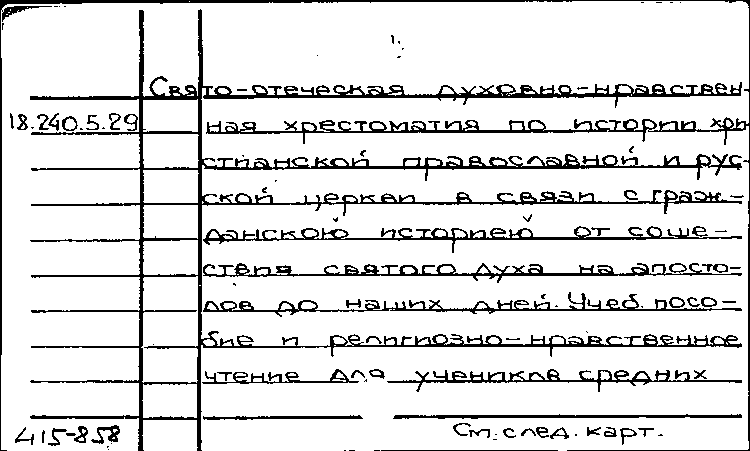 Свято-отеческая духовно-нравствен-
18.240.5.29 ная хрестоматия по истории хри-
стианской православной и рус-
ской церкви в связи с граж-
данскою историею от соше-
ствия святого духа на апосто-
лов до наших дней. Учеб. посо-
бие и религиозно-нравственное
чтение для учеников средних
415-858 См. след. карт.